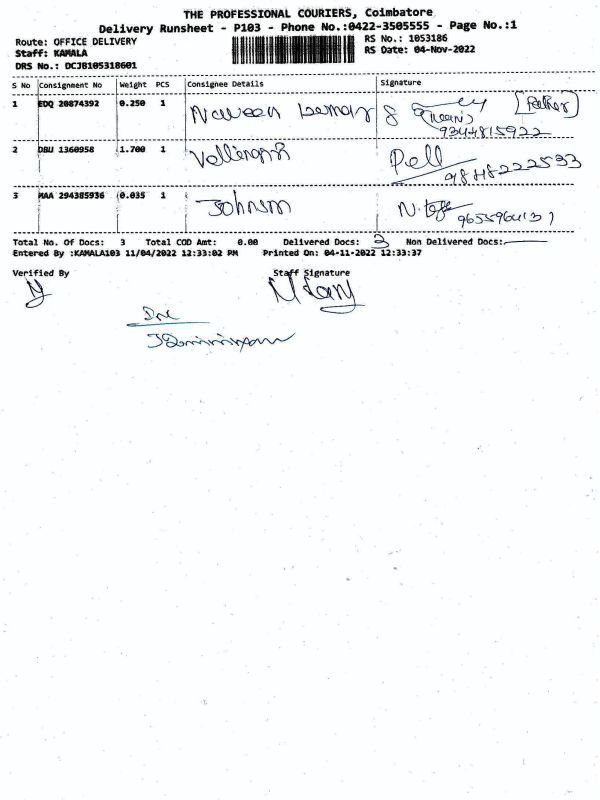 THE PROFESSIONAL COURIERS, Coimbatore
Delivery Runsheet - P103 - Phone No.:0422-3505555 - Page No.:1
Route: OFFICE DELIVERY RS No.: 1053186
Staff: KAMALA RS Date: 04-Nov-2022
DRS No.: DCJB105318601
S No Consignment No Weight PCS Consignee Details Signature
1 EDQ 20874392 0.250 1 Naveen kumar
9344815922
2 DBU 1360958 1.700 1
9848222533
3 MAA 294385936 0.035 1 Johnson
9655964131
Total No. Of Docs: 3 Total COD Amt: 0.00 Delivered Docs: 3 Non Delivered Docs:
Entered By :KAMALA103 11/04/2022 12:33:02 PM Printed On: 04-11-2022 12:33:37
Verified By Staff Signature